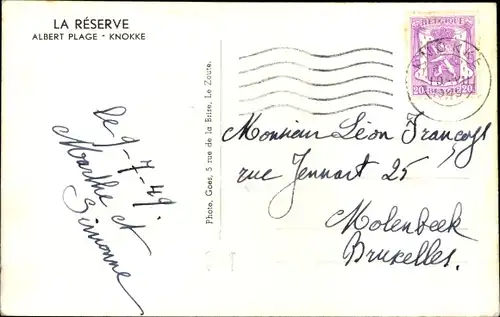 LA RÉSERVE
ALBERT PLAGE - KNOKKE
le 9-7-49.
Marthe et
Simonne
Photo. Goes, 5 rue de la Brise, Le Zoute.
BELGIQUE
20 BELGIE 20
KNOKKE
Monsieur Léon Françoys
rue Jennart 25
Molenbeek
Bruxelles.